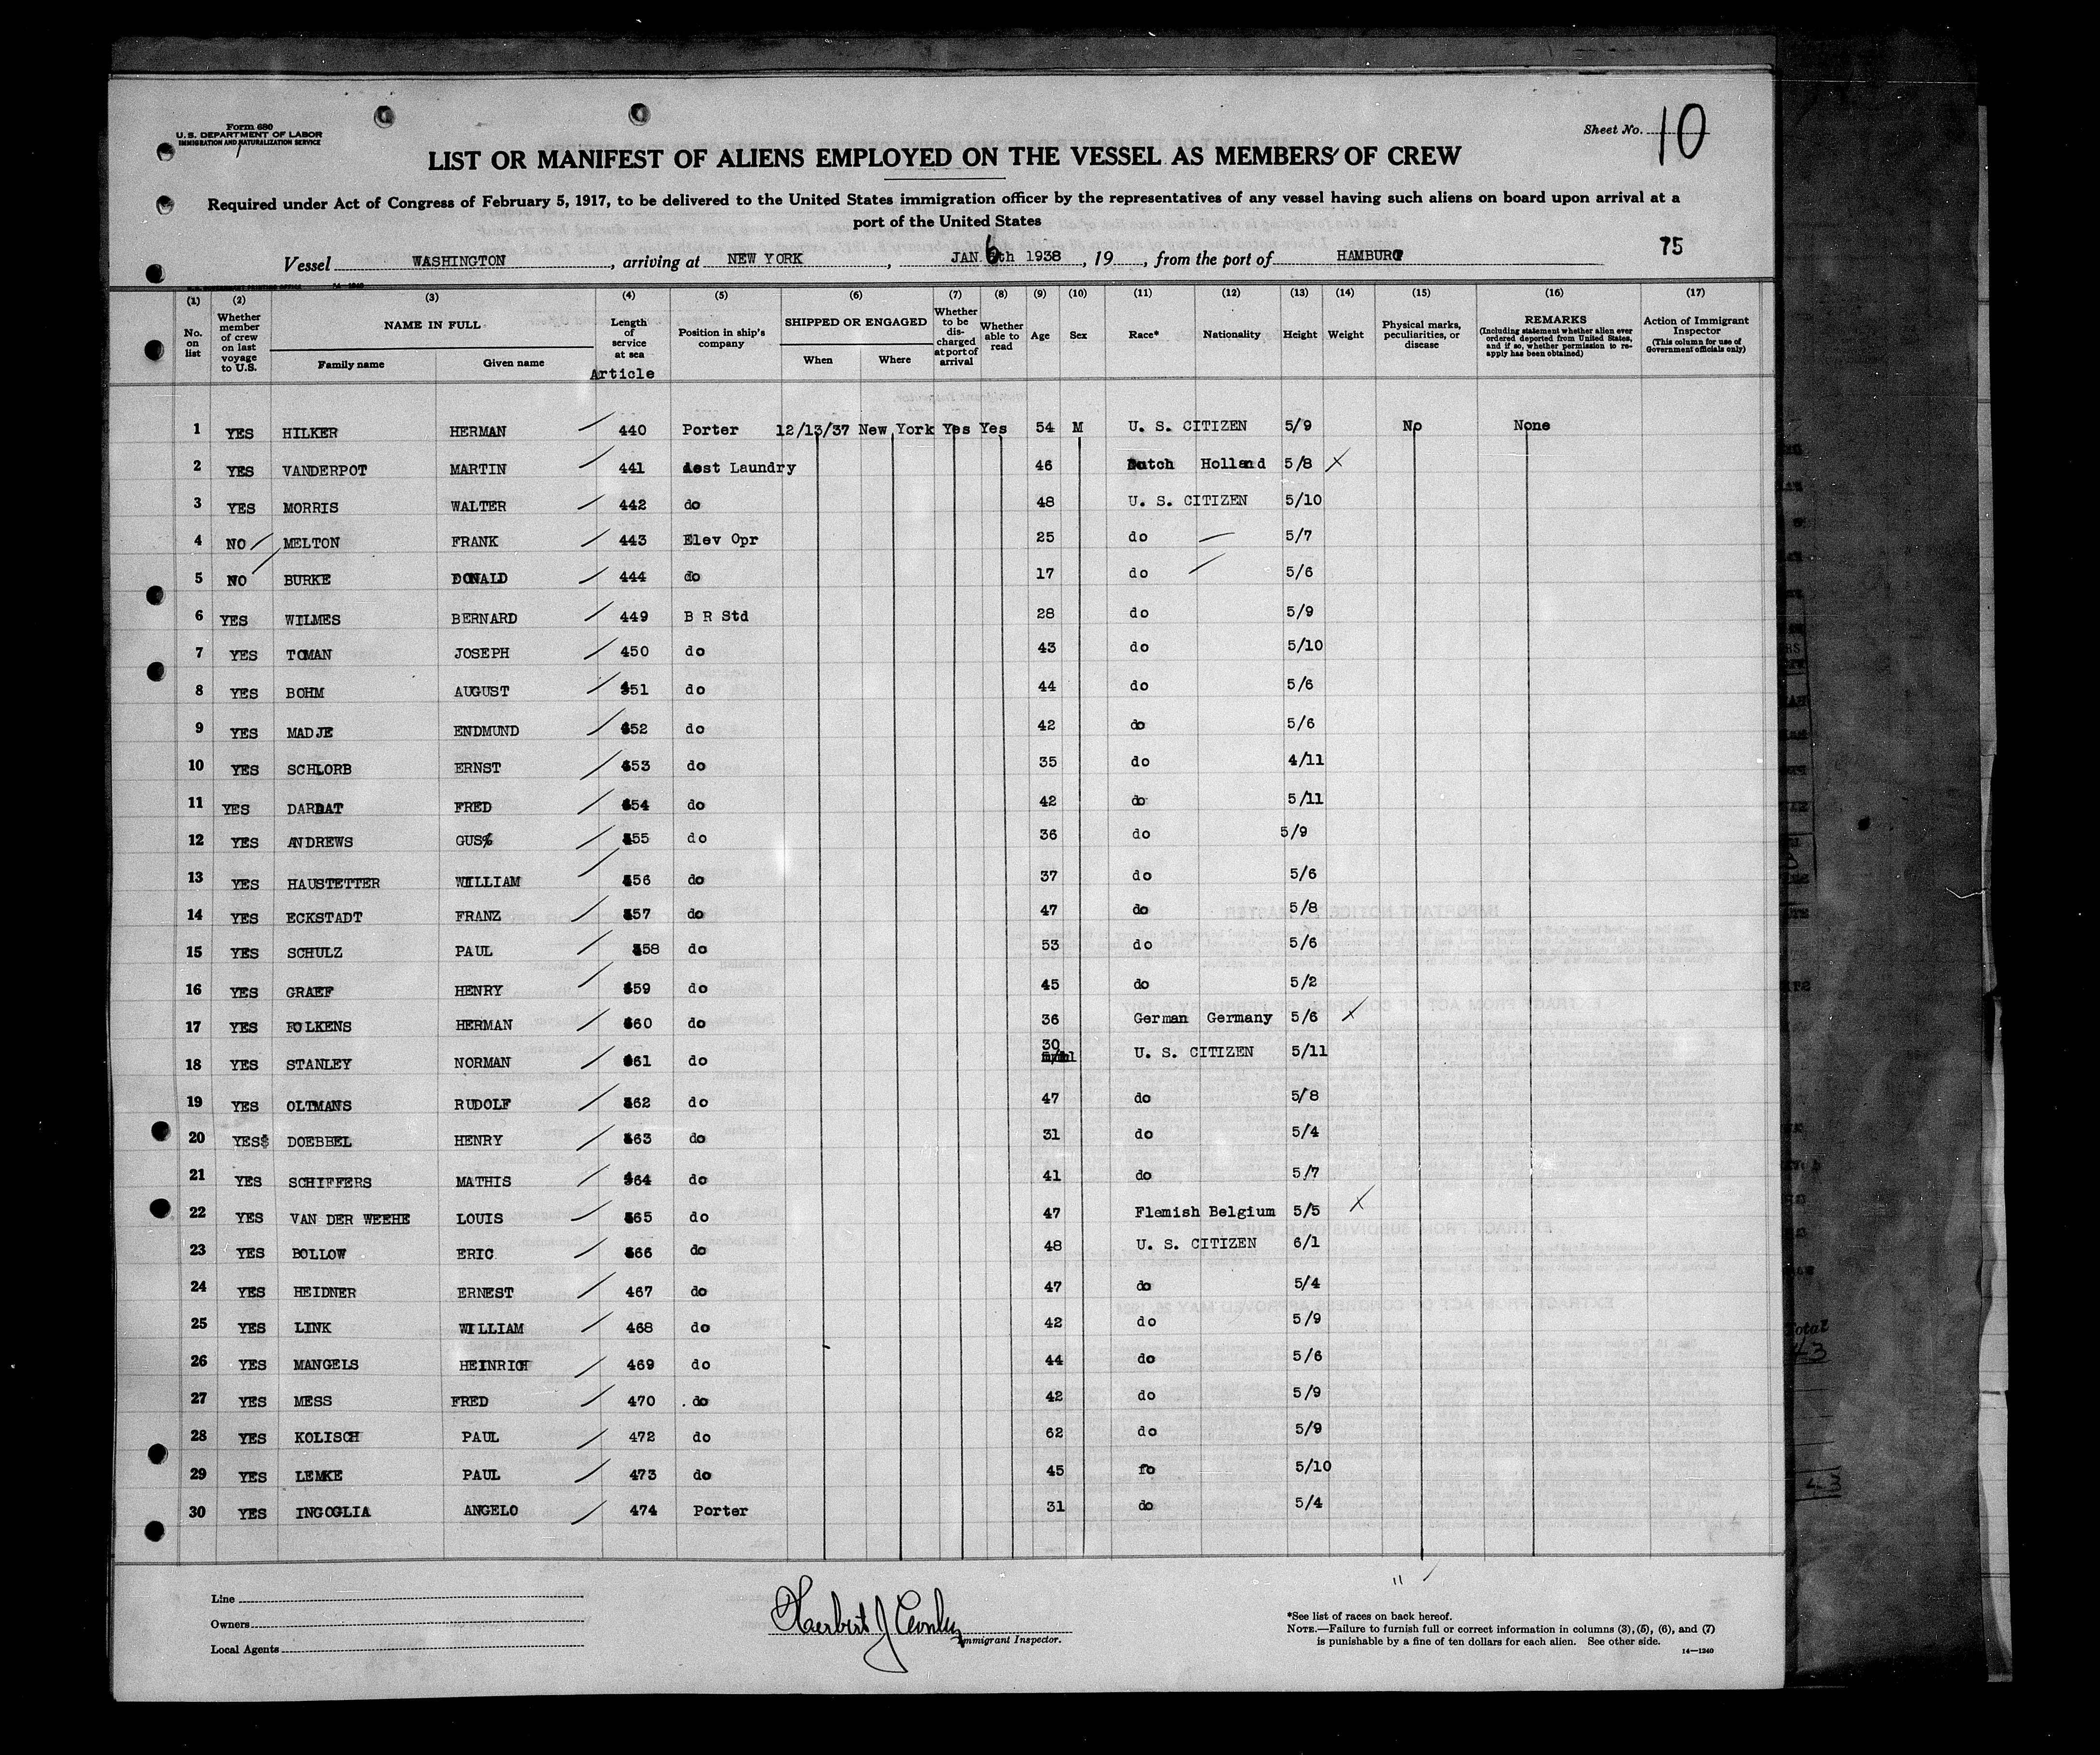 Form 680
U. S. DEPARTMENT OF LABOR
IMMIGRATION AND NATURALIZATION SERVICE
Sheet No. 10
LIST OR MANIFEST OF ALIENS EMPLOYED ON THE VESSEL AS MEMBERS OF CREW
Required under Act of Congress of February 5, 1917, to be delivered to the United States immigration officer by the representatives of any vessel having such aliens on board upon arrival at a
port of the United States
75
Vessel WASHINGTON, arriving at NEW YORK, JAN 6th 1938, 19, from the port of HAMBURG
(1) (2) (3) (4) (5) (6) (7) (8) (9) (10) (11) (12) (13) (14) (15) (16) (17)
No. on list
Whether member of crew on last voyage to U.S.
NAME IN FULL
Family name Given name
Length of service at sea
Article
Position in ship's company
SHIPPED OR ENGAGED
When Where
Whether to be discharged at port of arrival
Whether able to read
Age Sex Race* Nationality Height Weight
Physical marks, peculiarities, or disease
REMARKS
(Including statement whether alien ever ordered deported from United States, and if so, whether permission to reapply has been obtained)
Action of Immigrant Inspector
(This column for use of Government officials only)
1 YES HILKER HERMAN 440 Porter 12/13/37 New York Yes Yes 54 M U. S. CITIZEN 5/9 No None
2 YES VANDERPOT MARTIN 441 Asst Laundry 46 Dutch Holland 5/8 X
3 YES MORRIS WALTER 442 do 48 U. S. CITIZEN 5/10
4 NO MELTON FRANK 443 Elev Opr 25 do 5/7
5 NO BURKE DONALD 444 do 17 do 5/6
6 YES WILMES BERNARD 449 B R Std 28 do 5/9
7 YES TOMAN JOSEPH 450 do 43 do 5/10
8 YES BOHM AUGUST 451 do 44 do 5/6
9 YES MADJE ENDMUND 452 do 42 do 5/6
10 YES SCHLORB ERNST 453 do 35 do 4/11
11 YES DARDAT FRED 454 do 42 do 5/11
12 YES ANDREWS GUS 455 do 36 do 5/9
13 YES HAUSTETTER WILLIAM 456 do 37 do 5/6
14 YES ECKSTADT FRANZ 457 do 47 do 5/8
15 YES SCHULZ PAUL 458 do 53 do 5/6
16 YES GRAEF HENRY 459 do 45 do 5/2
17 YES FOLKENS HERMAN 460 do 36 German Germany 5/6 X
18 YES STANLEY NORMAN 461 do 30 U. S. CITIZEN 5/11
19 YES OLTMANS RUDOLF 462 do 47 do 5/8
20 YES DOEBBEL HENRY 463 do 31 do 5/4
21 YES SCHIFFERS MATHIS 464 do 41 do 5/7
22 YES VAN DER WEEHE LOUIS 465 do 47 Flemish Belgium 5/5 X
23 YES BOLLOW ERIC 466 do 48 U. S. CITIZEN 6/1
24 YES HEIDNER ERNEST 467 do 47 do 5/4
25 YES LINK WILLIAM 468 do 42 do 5/9
26 YES MANGELS HEINRICH 469 do 44 do 5/6
27 YES MESS FRED 470 do 42 do 5/9
28 YES KOLISCH PAUL 472 do 62 do 5/9
29 YES LEMKE PAUL 473 do 45 fo 5/10
30 YES INGOGLIA ANGELO 474 Porter 31 do 5/4
Line
Owners
Local Agents
Herbert J
Immigrant Inspector.
*See list of races on back hereof.
NOTE.—Failure to furnish full or correct information in columns (3), (5), (6), and (7)
is punishable by a fine of ten dollars for each alien. See other side.
14—1240
Total
43